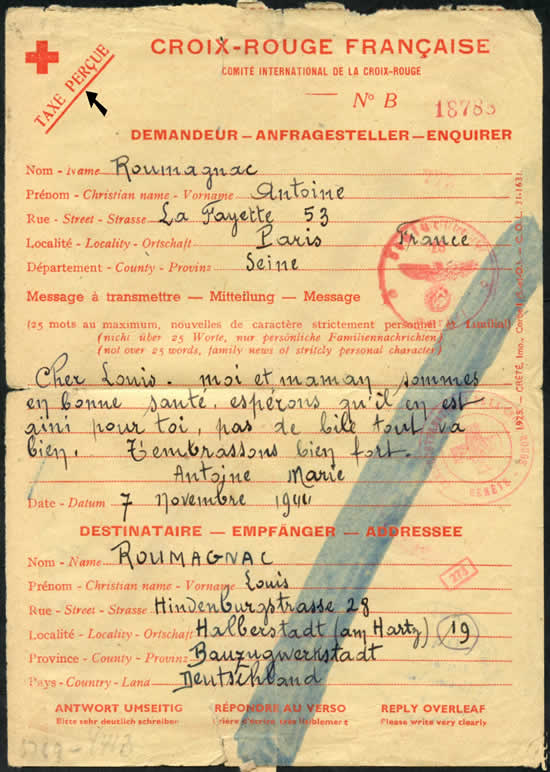 TAXE PERÇUE
CROIX-ROUGE FRANÇAISE
COMITÉ INTERNATIONAL DE LA CROIX-ROUGE
N° B 18783
DEMANDEUR – ANFRAGESTELLER – ENQUIRER
Nom - Name Roumagnac
Prénom - Christian name - Vorname Antoine
Rue - Street - Strasse La Fayette 53
Localité - Locality - Ortschaft Paris France
Département - County - Provinz Seine
Message à transmettre — Mitteilung — Message
(25 mots au maximum, nouvelles de caractère strictement personnel familial)
(nicht über 25 Worte, nur persönliche Familiennachrichten)
(not over 25 words, family news of strictly personal character)
Cher Louis. moi et maman sommes
en bonne santé. espérons qu'il en est
ainsi pour toi, pas de bile tout va
bien. T'embrassons bien fort.
Antoine Marie
Date - Datum 7 Novembre
DESTINATAIRE — EMPFÄNGER — ADDRESSEE
Nom - Name ROUMAGNAC
Prénom - Christian name - Vorname Louis
Rue - Street - Strasse Hindenburgstrasse 28
Localité - Locality - Ortschaft Halberstadt (am Hartz) 19
Province - County - Provinz Bauzugwerkstadt
Pays - Country - Land Deutschland
ANTWORT UMSEITIG RÉPONDRE AU VERSO REPLY OVERLEAF
Bitte sehr deutlich schreiben Prière d'écrire très lisiblement Please write very clearly
GENÈVE